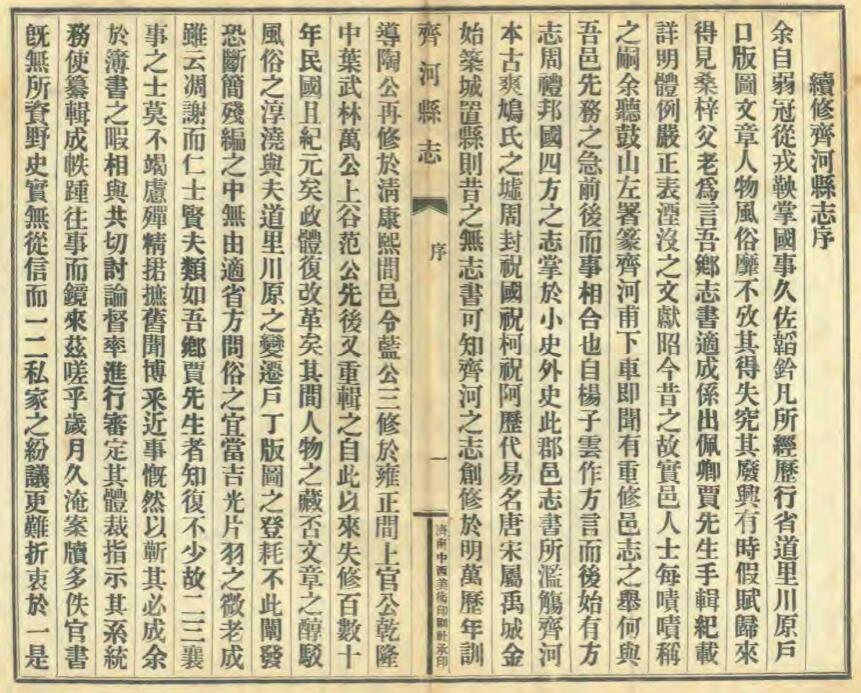 續修齊河縣志序
余自弱冠從戎鞅掌國事久佐韜鈐凡所經歷行省道里川原戶
口版圖文章人物風俗靡不攷其得失究其廢興有時假賦歸來
得見桑梓父老爲言吾鄉志書適成係出佩卿賈先生手輯紀載
詳明體例嚴正表湮沒之文獻昭今昔之故實邑人士每嘖嘖稱
之嗣余聽鼓山左署篆齊河甫下車即聞有重修邑志之舉何與
吾邑先務之急前後而事相合也自楊子雲作方言而後始有方
志周禮邦國四方之志掌於小史外史此郡邑志書所濫觴齊河
本古爽鳩氏之墟周封祝國祝柯祝阿歷代易名唐宋屬禹城金
始築城置縣則昔之無志書可知齊河之志創修於明萬歷年訓
齊河縣志
序
一
濟南中西美術印刷社承印
導陶公再修於清康熙間邑令藍公三修於雍正間上官公乾隆
中葉武林萬公上谷范公先後又重輯之自此以來失修百數十
年民國且紀元矣政體復改革矣其間人物之藏否文章之醇駁
風俗之淳澆與夫道里川原之變遷戶丁版圖之登耗不此闡發
恐斷簡殘編之中無由適省方問俗之宜當吉光片羽之微老成
雖云凋謝而仁士賢夫類如吾鄉賈先生者知復不少故二三襄
事之士莫不竭慮殫精捃摭舊聞博釆近事慨然以蘄其必成余
於簿書之暇相與共切討論督率進行審定其體裁指示其系統
務使纂輯成帙踵往事而鏡來茲嗟乎歲月久淹案牘多佚官書
旣無所資野史實無從信而一二私家之紛議更難折衷於一是